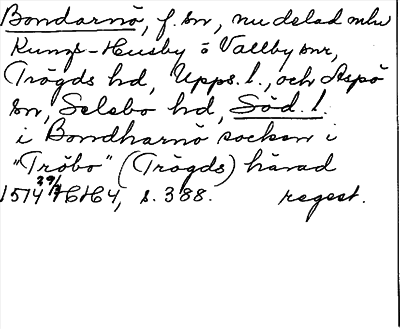 Bondarnö, f. sn, nu delad mln
Kungs-Husby o Vallby snr,
Trögds hd, Upps. l., och Aspö
sn, Selebo hd, Söd. l.
i Bondharnö socken i
"Tröbo" (Trögds) härad
1514 29/3 HH4, s. 388. regest.